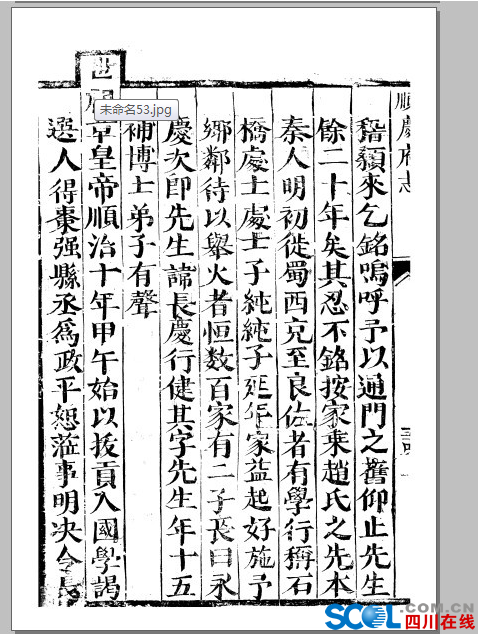 順慶府志
稽顙來乞銘嗚呼予以通門之舊仰止先生
餘二十年矣其忍不銘按家乘趙氏之先本
秦人明初徙蜀西充至良佐者有學行稱石
橋處士處士子純純子延年家益起好施予
鄉鄰待以舉火者恒数百家有二子長曰永
慶次即先生諱長慶行健其字先生年十五
補博士弟子有聲
世章皇帝順治十年甲午始以拔貢入國學謁
選人得棗强縣丞爲政平恕蒞事明决令長
未命名53.jpg
SCOL.COM.CN
四川在线